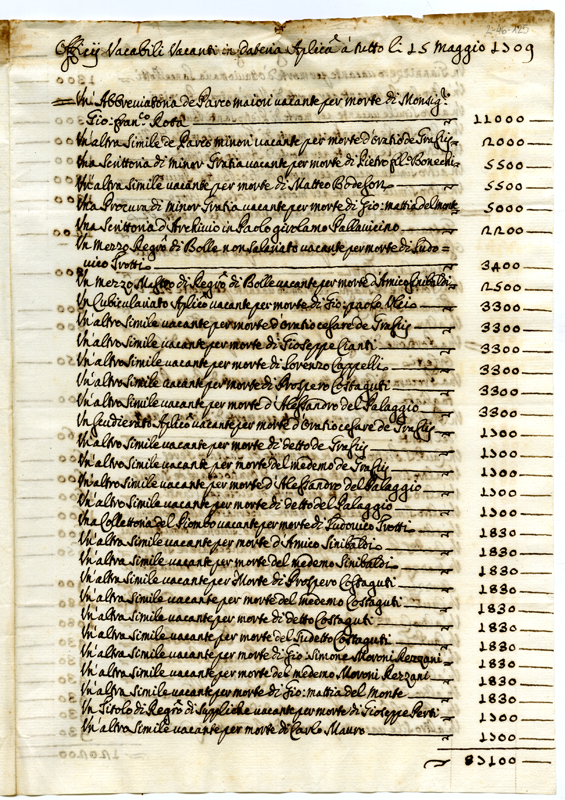 Officij Vacabili Vacanti in Dateria Aplicā à tutto li 15 Maggio 1709
Un' Abbreviatoria de Parco maiori vacante per morte di Monsig.r
Gio: Fran.co Rota 11000
Un'altra Simile de Parco minori vacante per morte d'Oratio de Grassis 2000
Una Scrittoria di minor Gratia vacante per morte di Pietro Bonechi 5500
Un'altra Simile vacante per morte di Matteo 5500
Una Procura di minor Gratia vacante per morte di Gio: mattia del monte 5000
Una Scrittoria d'Archivio in Paolo Girolamo Pallavicino 2200
Un Mezzo Regrō di Bolle non Salariato vacante per morte di Ludo=
vico Trotti 3400
Un mezzo di Regrō di Bolle vacante per morte d'Amico Sinibaldi 2500
Un Cubiculariato Aplicō vacante per morte di Gio: paolo 3300
Un'altro Simile vacante per morte d'Oratio Cesare de Grassis 3300
Un'altro Simile vacante per morte di Gioseppe Cianti 3300
Un'altro Simile vacante per morte di Lorenzo Cappelli 3300
Un'altro Simile vacante per morte di Prospero Costaguti 3300
Un'altro Simile vacante per morte d'Alessandro del Palaggio 3300
Un Scudierato Aplicō vacante per morte d'Oratio Cesare de Grassis 1700
Un'altro Simile vacante per morte di detto de Grassis 1700
Un'altro Simile vacante per morte del medemo de Grassis 1700
Un'altro Simile vacante per morte d'Alessandro del Palaggio 1700
Un'altro Simile vacante per morte di detto del Palaggio 1700
Una Collettoria del Piombo vacante per morte di Ludovico Trotti 1830
Un'altra Simile vacante per morte d'Amico Sinibaldi 1830
Un'altra Simile vacante per morte del medemo Sinibaldi 1830
Un'altra Simile vacante per Morte di Prospero Costaguti 1830
Un'altra Simile vacante per morte del medemo Costaguti 1830
Un'altra Simile vacante per morte di detto Costaguti 1830
Un'altra Simile vacante per morte del Sudetto Costaguti 1830
Un'altra Simile vacante per morte di Gio: Simone Moroni Rezzani 1830
Un'altra Simile vacante per morte del medemo Moroni Rezzani 1830
Un'altra Simile vacante per morte di Gio: mattia del Monte 1830
Un Titolo di Regrō di Suppliche vacante per morte di Gioseppe Perti 1700
Un'altro Simile vacante per morte di Carlo Mauro 1700
87100